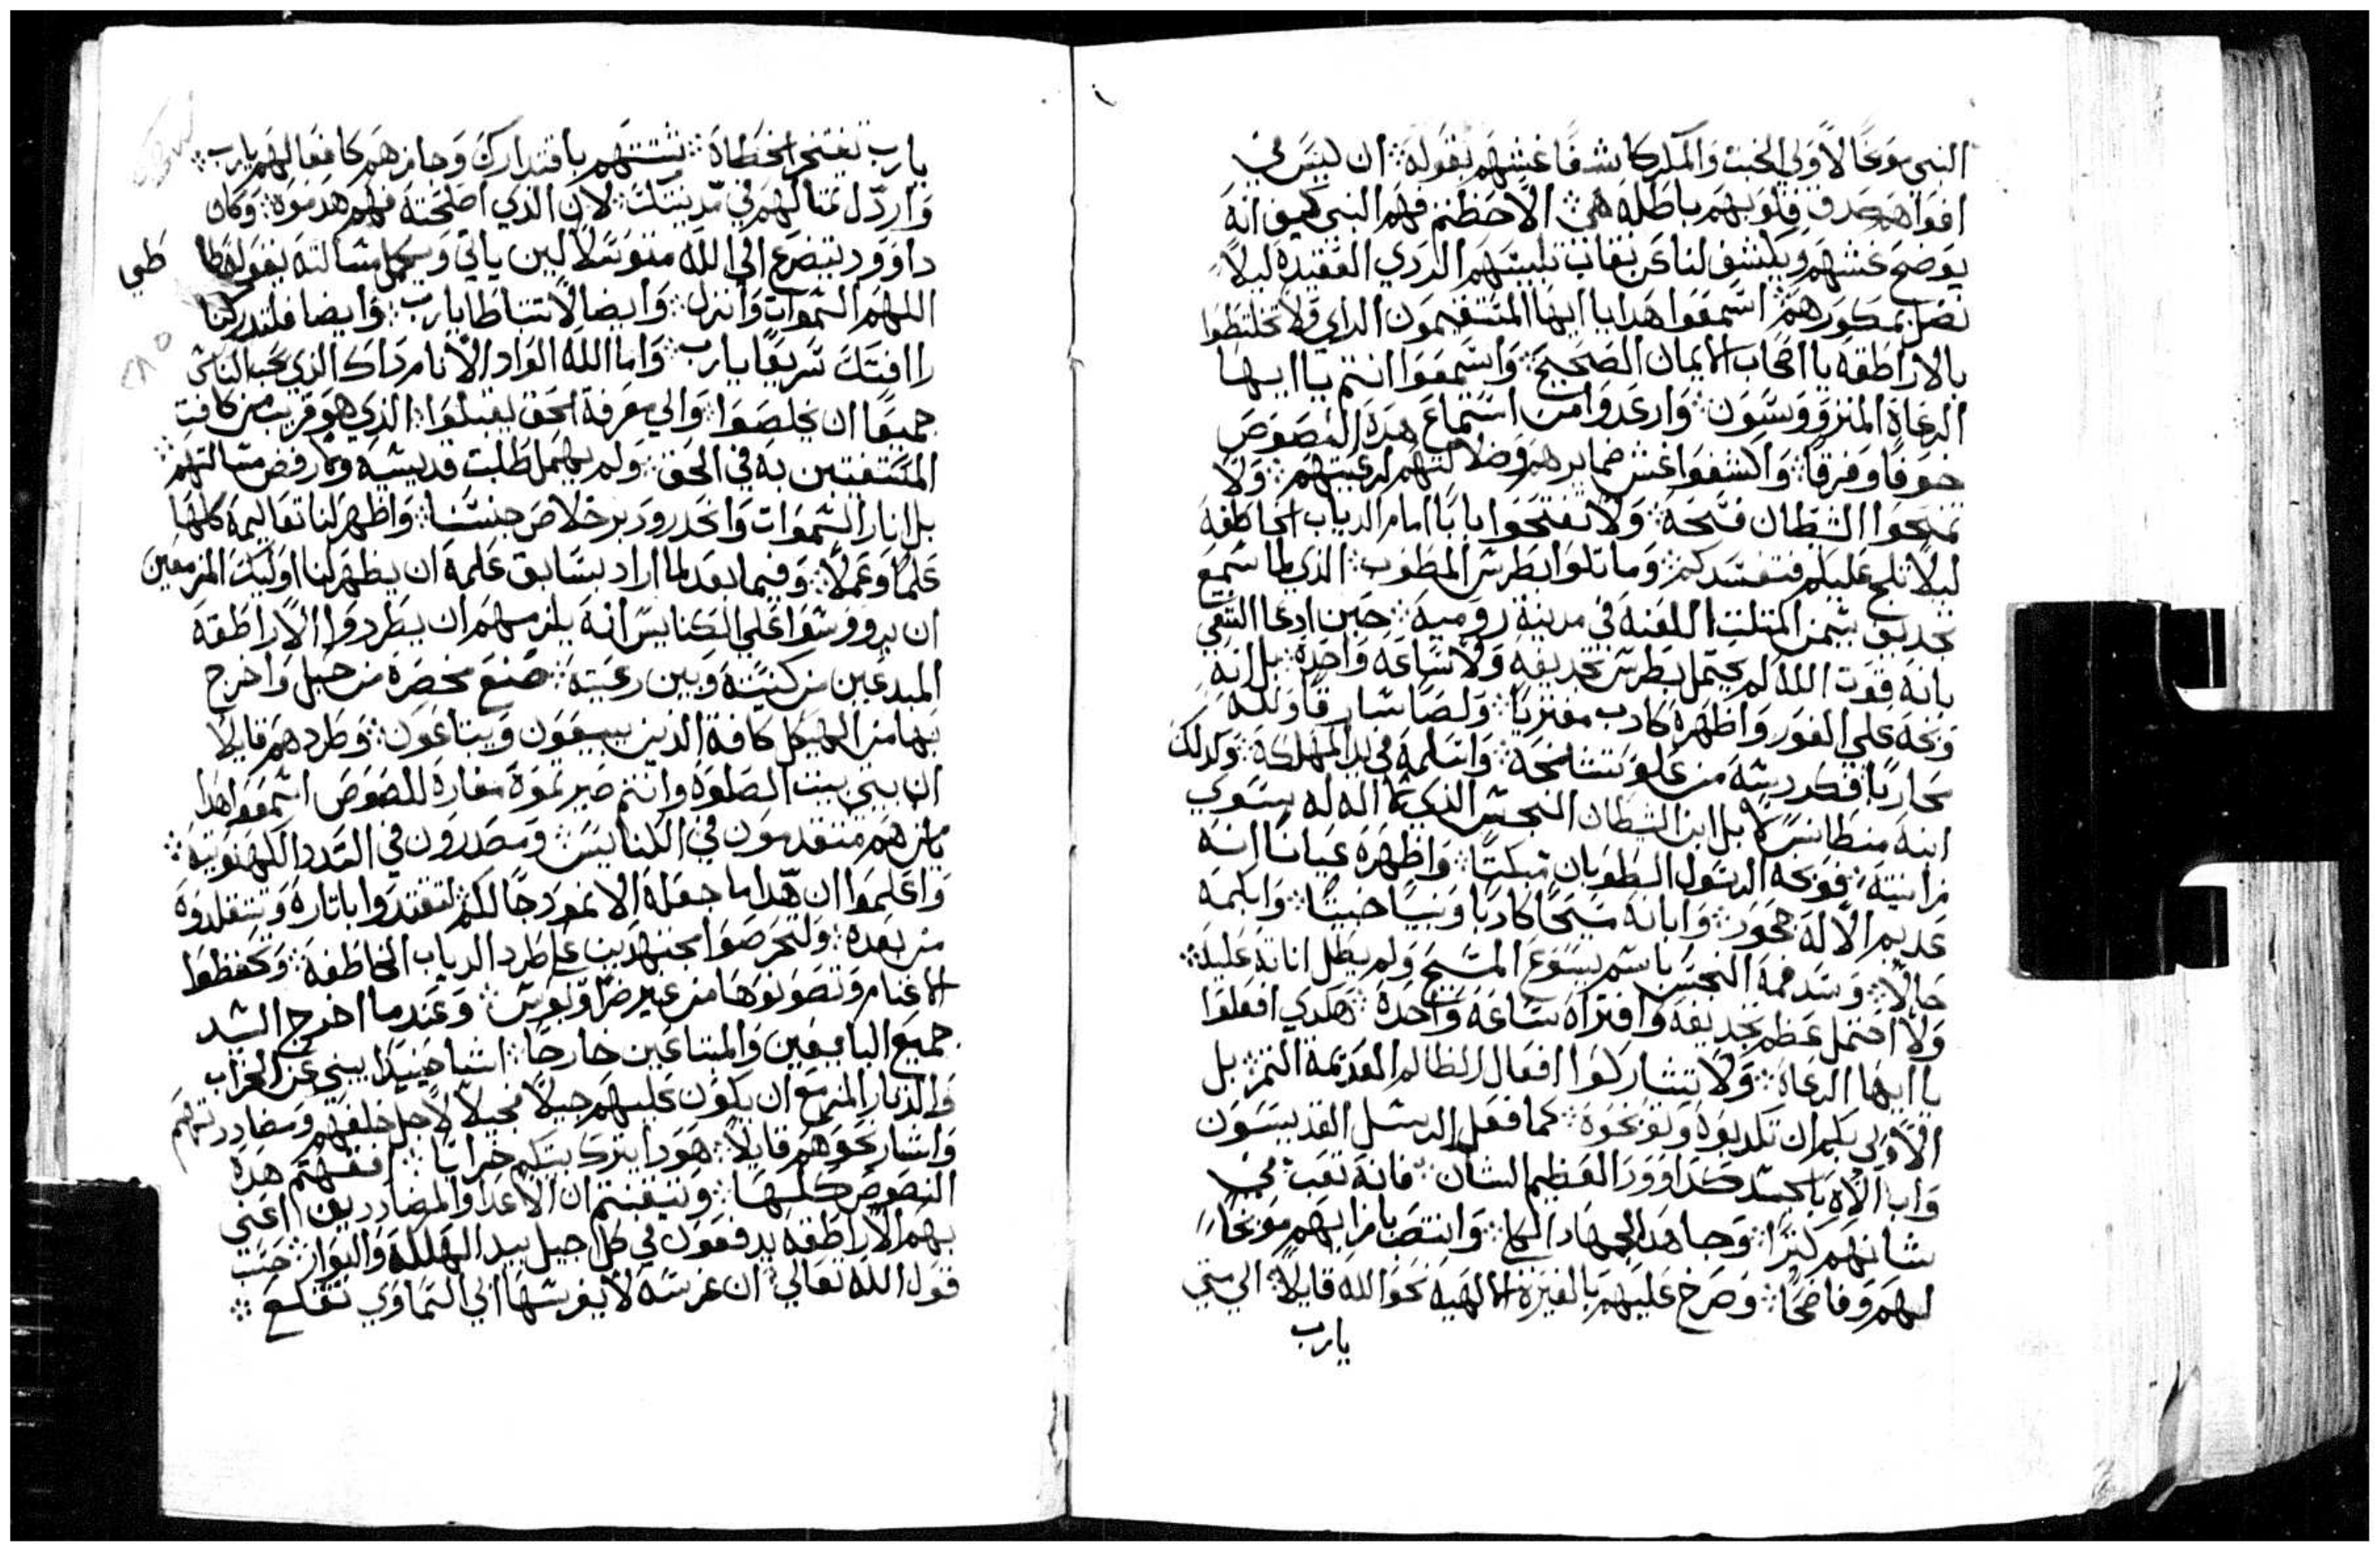 النبي موبخًا لاولي الخبث والمكر كاشفًا غشهم بقوله ۞ ان ليس في
افواههم صدق قلوبهم باطله هي ۞ الاحظتم فهم النبي كيف انه
يوضح غشهم ويكشف لنا عن نقاب تلبيسهم الردي العقيده ليلا
نضل بمكورهم ۞ اسمعوا هدا يا ايها المستقيمون الراي ولا تختلطوا
بالاراطقه يا اصحاب الايمان الصحيح ۞ واسمعوا انتم يا ايها
الرعاة المترووسون ۞ وارعدوا من استماع هده النصوص
خوفًا وفرقًا ۞ واكشفوا غش ضمايرهم وضلالتهم لرعيتهم ۞ ولا
تمنحوا الشيطان فسحه ۞ ولا تفتحوا بابًا امام الدياب الخاطفه
ليلا تلج عليكم فتفسدكم ۞ وما تلوا بطرس المطوب ۞ الذي لما سمع
تجديف سيمن المتلت اللعنه في مدينة روميه ۞ حين ادعا الشقي
بانه قوت الله لم يحتمل بطرس تجديفه ولا ساعه واحدة ۞ بل انه
وبخه علي الفور واظهره كادب مفتريًا ۞ ولصًا سارقًا ولله
محاربًا فكردسه من علو تشامخه ۞ واسلمه في يد المهلكه ۞ وكدلك
ابنه منطانس لا بل ابن الشيطان النجس الذي لا اله له يسوي
مرانيته ۞ فوبخه الرسول الطوبان مبكتًا ۞ واظهره عيانًا انه
عديم الاله محور ۞ وابانه مسيحًا كادبًا ونبيًا خبيثًا ۞ وابكمه
حالًا ۞ وسد فمه النجس باسم يسوع المسيح ولم يطل اناته عليه ۞
ولا احتمل عظم تجديفه وافتراه ساعه واحده ۞ هكدي افعلوا
يا ايها الرعاة ۞ ولا تشاركوا افعال الظالم العديمة الثمر بل
الاولي بكم ان تكدبوه وتوبخوه ۞ كما فعل الرسل القديسون
واب الاله بالجسد داوود العظيم الشان ۞ فانه تعب في
شانهم كثيرًا ۞ وجاهد الجهاد الكلي ۞ وانتصب بازايهم موبخًا
لهم وفاضحًا ۞ وصرخ عليهم بالغيرة الالهيه نحو الله قايلًا ۞ الي متي
يارب
يارب تفتخر الخطاة ۞ شتتهم باقتدارك وجازهم كافعالهم يارب ۞
واردل تمتالهم في مدينتك ۞ لان الذي اصلحته فهم هدموه ۞ وكان
داوود يتضرع الي الله متوسلًا لين ياتي ويكمل مسالته بقوله طا
طي
اللهم السموات وانزل ۞ وايضا لا تتباطا يارب ۞ وايضا فلتدركنا
راافتك سريعًا يارب ۞ واما الله الواد الانام داك الذي يحب الناس
جميعًا ان يخلصوا ۞ والي معرفة الحق يقبلوا ۞ الذي هو قريب من كافت
المستغيتين به في الحق ۞ ولم يهمل طلبت قديسه وما رفض مسالتهم ۞
بل انار السموات وانحدر ودبر خلاص جنسنا ۞ واظهر لنا تعاليمه كلها
علمًا وعملًا ۞ وفيما بعد لما اراد بسابق علمه ان يظهر لنا اوليك المزمعين
ان يرووسوا علي الكنايس انه يلزمهم ان يطردوا الاراطقه
المبدعين من كنيسته وبين رعيته ۞ صنع مخصرة من حبل واخرج
بها من الهيكل كافة الذين يبيعون ويبتاعون ۞ وطردهم قايلًا
ان بيتي بيت الصلوة وانتم صيرتموه مغارة للصوص اسمعوا هدا
يا من هم متقدمون في الكنايس ومصدرون في السدد الكهنوتيه ۞
واعلموا ان هدا ما جعله الا نمودجًا لكم لتقتدوا باتاره وتتقلدوه
من بعده ۞ ولتحرصوا مجتهدين علي طرد الدياب الخاطفه ۞ وتحفظوا
الاغنام وتصونوها من غير ضر او بوس ۞ وعندما اخرج السيد
جميع البايعين والمبتاعين خارجًا ۞ انشا حينيدًا يبني عن الخراب
والدمار المزمع ان يكون عليهم جيلًا فجيلًا لاجل خلفهم ومضاددتهم
واشار نحوهم قايلًا ۞ هودا يترك بيتكم خرابًا ۞ افقهتم هده
النصوص كلها ۞ وتيقنتم ان الاعدا والمضاددين اعني
بهم الاراطقه يدفعون في كل جيل بيد الهلكه والبوار ۞ حسب
قول الله تعالي ۞ ان غرسه لا يغرسها ابي السماوي تقلع ۞